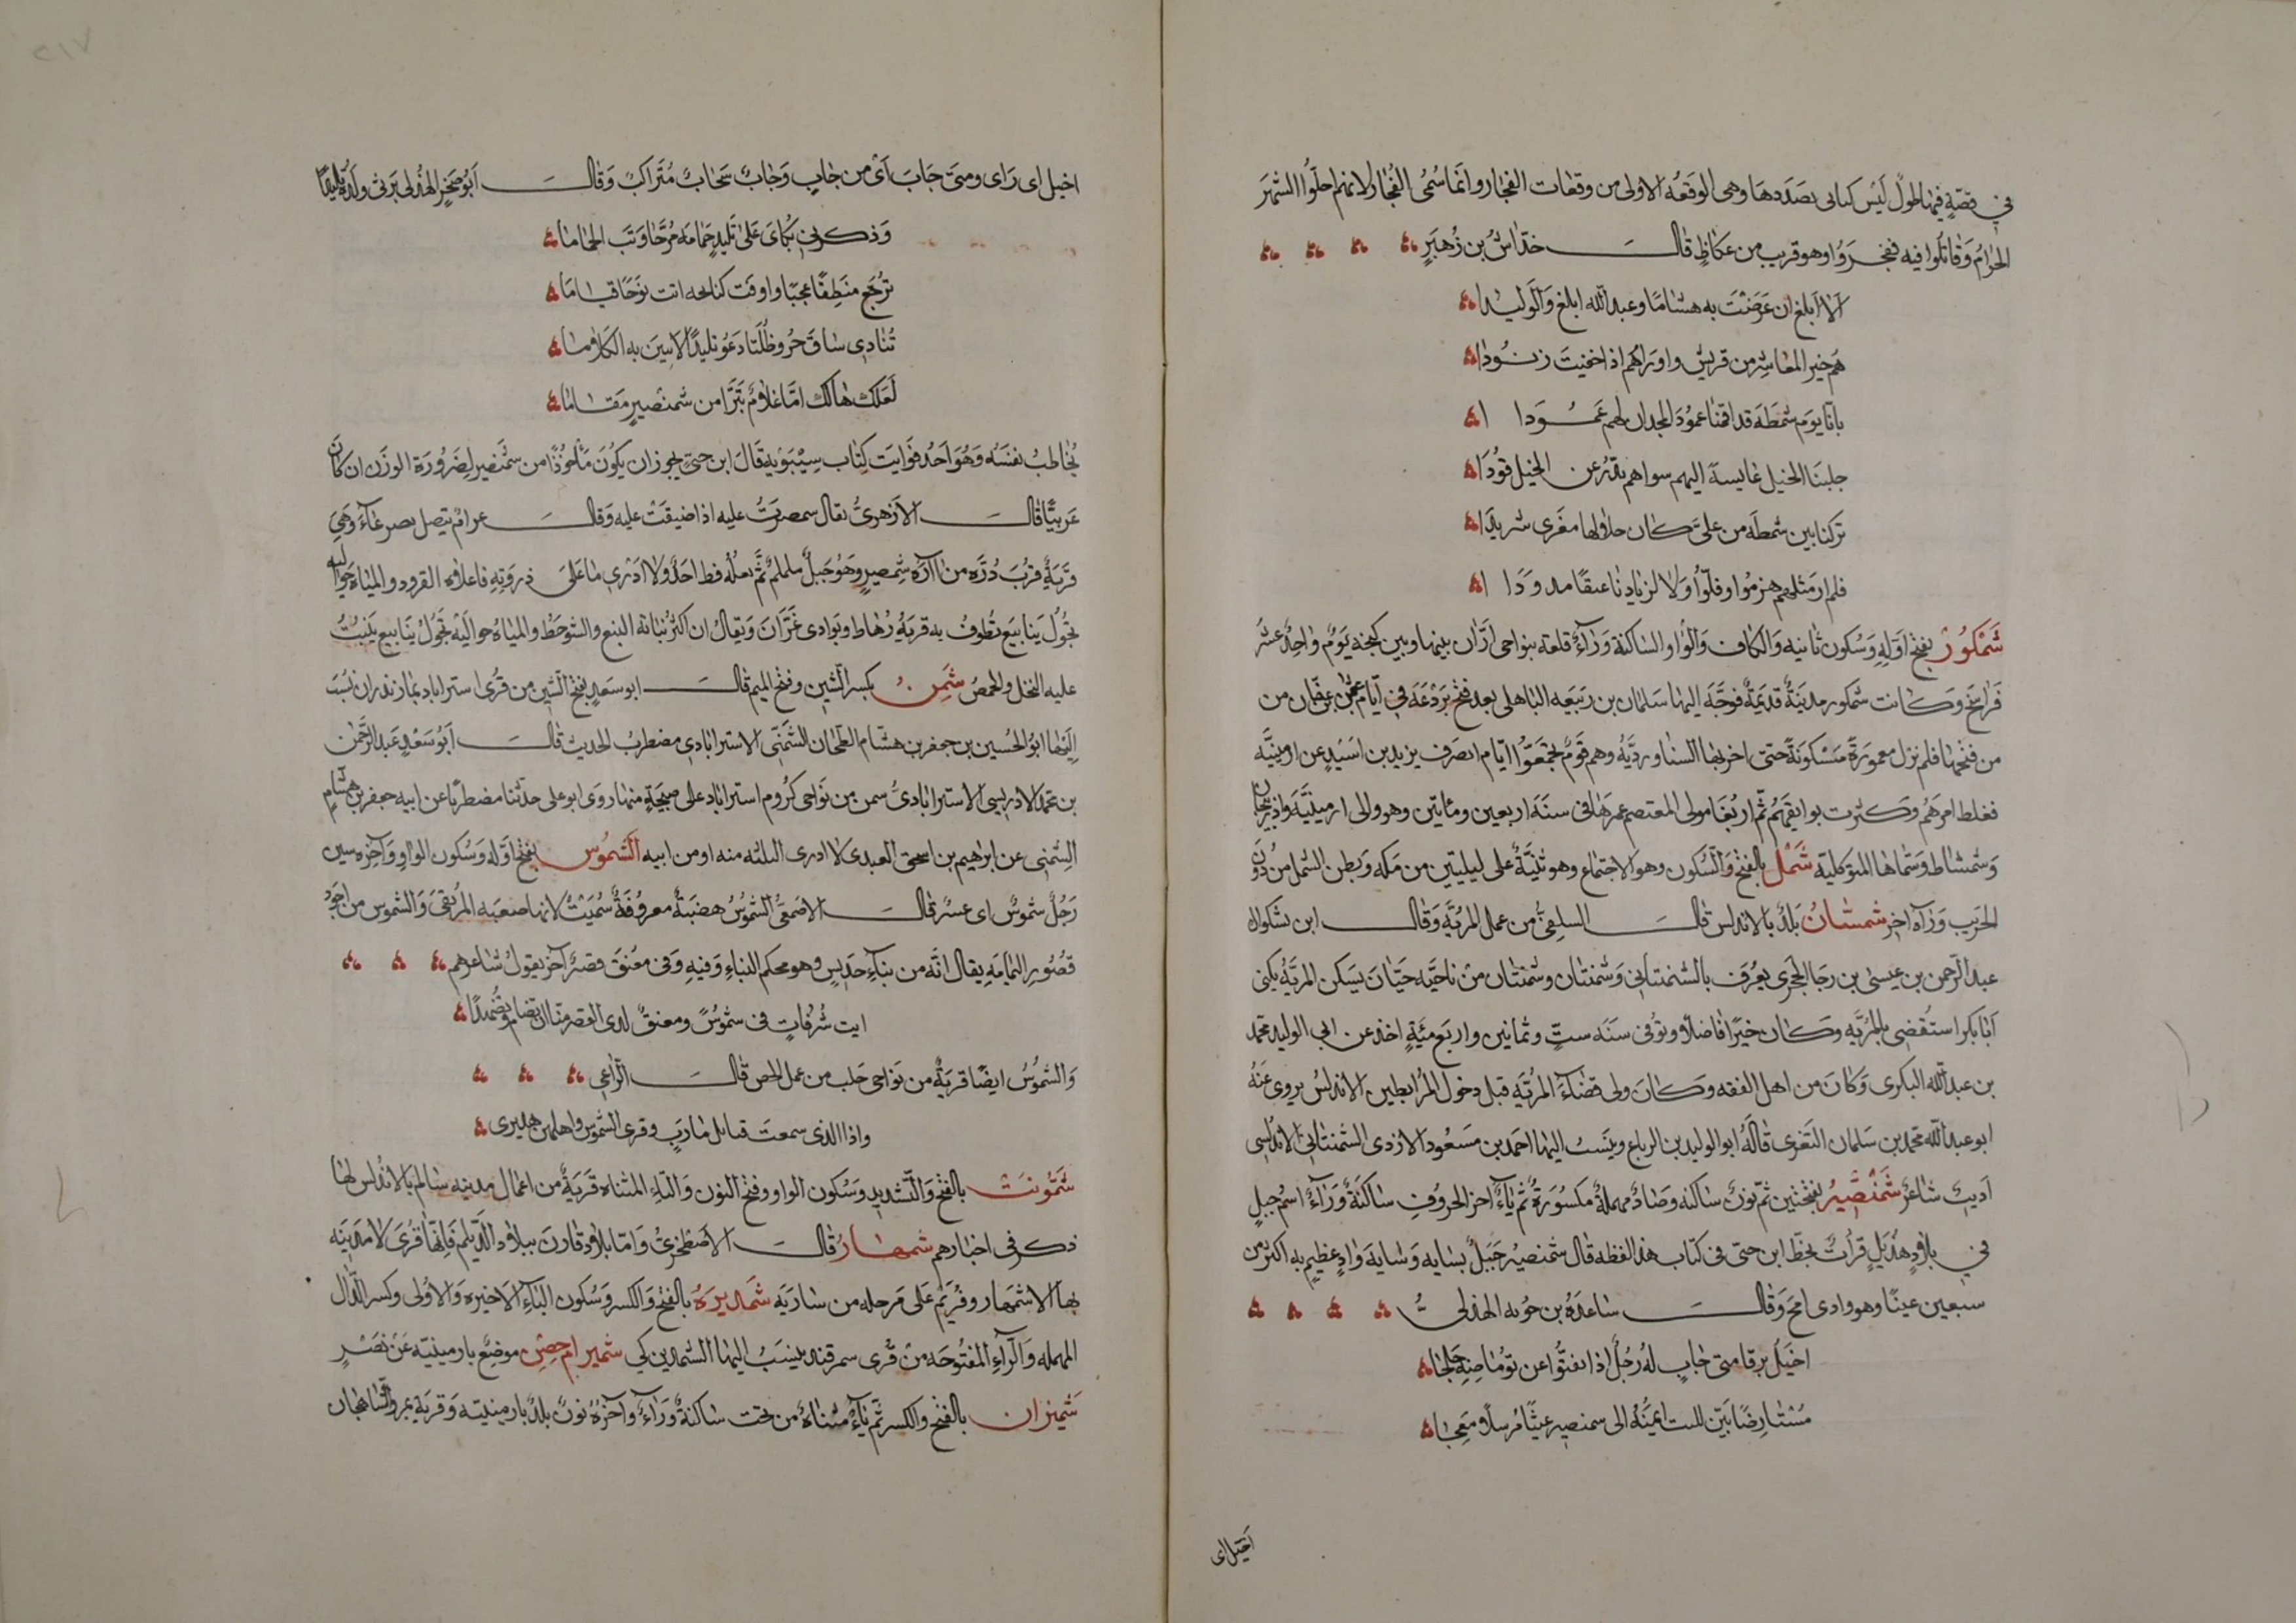 في قصة فيها طول ليس كتابي بصددها وهي الوقعه الاولى من وقعات الفجار وانما سُمى الفجار لانهم احلوا الشهر
الحرام وقاتلوا فيه ففجروا وهو قريب من عكاظ قال خداش بن زهير
الا ابلغ ان عرضت به هشاما وعبد الله ابلغ والوليدا
هم خير المعاشر من قريش واوراهم اذا خفيت زنودا
بانا يوم شمطه قد اقمنا عمود المجد ان لهم عمودا
جلبنا الخيل عابسة اليهم سواهم يدرعن الخيل قودا
تركنا بين شمطه من على كان حلالها مغرى شريدا
فلم ار مثلهم هزموا وفلوا ولا لزيادنا عنقا مدودا
شمكور بفتح اوله وسكون ثانيه والكاف والواو الساكنة وراء قلعه بنواحى اران بينها وبين كنجه يوم واحد عشر
فراسخ وكانت شمكور مدينة قديمة فوجه اليها سلمان بن ربيعه الباهلى بعد فتح بردعه في ايام عثمن بن عفان من
من فتحها فلم تزل معمورة مسكونة حتى اخربها السناورديه وهم قوم تجمعوا ايام انصرف يزيد بن اسيد عن ارمينيه
فغلظ امرهم وكثرت بوايقهم ثم ان بغا مولى المعتصم عمرها في سنة اربعين ومائتين وهو والى ارمينيه واذربيجان
وشمشاط وسماها المتوكليه شمل بالفتح والسكون وهو الاجتماع وهو ثنية على ليلتين من مكه وبطن الشمل من دون
الحريب وراه اخر شمشان بلد بالاندلس قال السلفى من عمل المريه وقال ابن بشكوال
عبد الرحمن بن عيسى بن رجا الحجرى يعرف بالشمنتاني وشمنتان وشمنتان من ناحيه جيان يسكن المريه يكنى
ابا بكر استقضى بالمريه وكان خيرا فاضلا وتوفى سنه ست وثمانين واربع مئة اخذ عن ابي الوليد محمد
بن عبد الله البكرى وكان من اهل الفقه وكان ولى قضاء المريه قبل دخول المرابطين الاندلس يروى عنه
ابو عبد الله محمد بن سلمان النفزى قاله ابو الوليد بن الدباغ وينسب اليها احمد بن مسعود الازدى الشمنتاني الاندلسى
اديب شاعر شمنصير بفتحتين ثم نون ساكنه وصاد مهملة مكسورة ثم ياء اخر الحروف ساكنة وراء اسم جبل
في بلاد هذيل قرات بخط ابن جنى في كتاب هذا لفظه قال شمنصير جبل بسايه وسايه واد عظيم به اكثر من
سبعين عينا وهو وادى امج وقال ساعده بن جويه الهذلى
اخيل برقا متى جاب له زجل اذا تفتر عن توماضه حلجا
مستارضا بين اعلى الليث ايمنه الى سمنصير غيثا مرسلا معجا
اخيل اى
اخيل اى راى ومتى جاب اى من جاب وجاب سحاب متراكب وقال ابو صخر الهذلى يرثى ولده تليدا
وذكرني بكاى على تليد حمامه مر جاوبت الحماما
ترجع منطقا عجبا واوفت كنايحه اتت نوحا قياما
تنادى ساق حر وظلت ادعو تليدا لا تبين به الكلاما
لعلك هالك اما غلام تبوا من شمنصير مقاما
يخاطب نفسه وهو احد فوايت كتاب سيبويه قال ابن جنى يجوز ان يكون ماخوذا من سمنصير لضرورة الوزن ان كان
عربيا قال الازهرى يقال سمصرت عليه اذا ضيقت عليه وقال عرام يتصل بضرعاء وهى
قرية قرب ذره من اآره شمنصير وهو جبل ململم ثم يعله قط احد ولا ادرى ما على ذروته فاعلاه القرود والمياه حواليه
تجول ينابيع تطوف به قرية رهاط وبوادى غران ويقال ان اكثر نباته النبع والشوحط والمياه حواليه تجول ينابيع ينبت
عليه النخل والحمص شمن بكسر الشين وفتح الميم قال ابو سعد بفتح الشين من قرى استراباد بمازندران نسب
اليها ابو الحسين بن جعفر بن هشام الطحان الشمنى الاستراباذى مضطرب الحديث قال ابو سعد عبد الرحمن
بن محمد الادريسى الاستراباذى سمن من نواحى كروم استراباد على صيحة منها روى ابو على حدثنا مضطربا عن ابيه جعفر بن هشام
الشمنى عن ابراهيم بن اسحق العبدى لا ادرى البلية منه او من ابيه الشموس بفتح اوله وسكون الواو واخره سين
رجل شموس اى عسر قال الاصمعى الشموس هضبة معروفة سميت لانها صعبه المرتقى والشموس من اجود
قصور اليمامه يقال انه من بناء جديس وهو محكم البناء وفيه وفى معنق قصر آخر يقول شاعرهم
ابت شرفات في شموس ومعنق لدى القصر منا ان تضام وتضهدا
والشموس ايضا قرية من نواحى حلب من عمل الحص قال الراعى
وانا الذى سمعت قبائل مارب وقرى الشموس واهلهن هديرى
شمونت بالفتح والتشديد وسكون الواو وفتح النون والتاء المثناه قرية من اعمال مدينه سالم بالاندلس لها
ذكر فى اخبارهم شمهار قال الاصطخرى واما بلاد قارن ببلاد الديلم فانها قرى لا مدينه
بها الا شمهار وفريم على مرحله من ساريه شمديره بالفتح والكسر وسكون الياء الاخيره والاولى وكسر الدال
المهمله والراء المفتوحه من قرى سمرقند ينسب اليها الشمديزكى شمير ام حصن موضع بارمينيه عن نصر
شميران بالفتح والكسر ثم ياء مثناة من تحت ساكنة وراء وآخره نون بلد بارمينيه وقرية بمرو الشاهجان